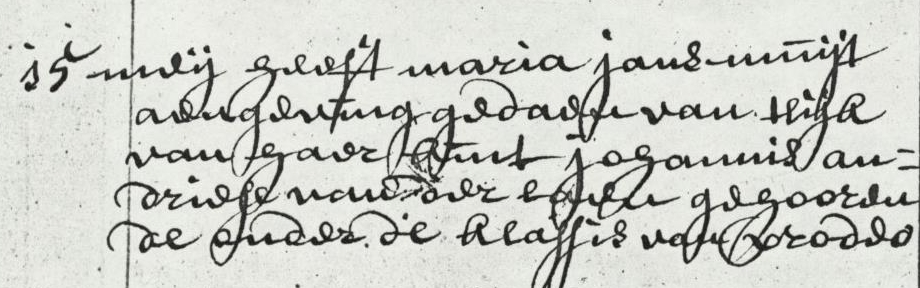 15 meij heeft maria jans
aengeving gedaen van t lijk
van haer kint johannis an=
driess van der gehooren
de onder de klassis van prodeo